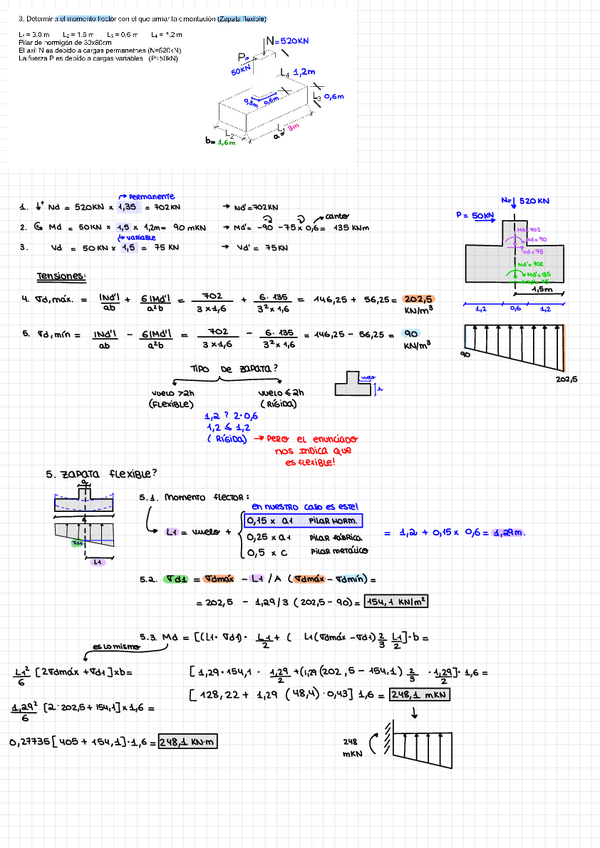 3. Determinar el momento flector con el que armar la cimentación (Zapata flexible)
L₁ = 3.0 m L₂ = 1.6 m L₃ = 0.6 m L₄ = 1.2 m
Pilar de hormigón de 30x60cm
El axil N es debido a cargas permanentes (N=520kN)
La fuerza P es debido a cargas variables (P=50kN)
N=520KN
P=
50KN
L₄ 1,2m
0,3m 0,6m
L₃ 0,6m
L₂
b= 1,6m
a= 3m
PERMANENTE
1. ↓⁺ Nd = 520KN × 1,35 = 702 KN → Nd'=702KN
canto
2. Md = 50KN × 1,5 × 1,2m = 90 mKN → Md'= -90 -75 × 0,6 = 135 KNm
VARIABLE
3. Vd = 50 KN × 1,5 = 75 KN → Vd' = 75KN
N= 520 KN
P = 50KN
Nd=702
Md=90
Vd=75
Nd'= 702
Md'=135
1,5m
1,2 0,6 1,2
90
202,5
Tensiones:
4. σd,máx. = |Nd'|/ab + 6|Md'|/a²b = 702/3×1,6 + 6·135/3²×1,6 = 146,25 + 56,25 = 202,5 KN/m²
5. σd,mín = |Nd'|/ab - 6|Md'|/a²b = 702/3×1,6 - 6·135/3²×1,6 = 146,25 - 56,25 = 90 KN/m²
TIPO DE ZAPATA?
vuelo
h
vuelo >2h vuelo ≤ 2h
(FLEXIBLE) (RÍGIDA)
1,2 ? 2·0,6
1,2 ≤ 1,2
(RÍGIDA) → PERO el enunciado
nos indica que
es flexible!
5. ZAPATA FLEXIBLE?
5.1. Momento FLECTOR:
en nuestro caso es este!
0,15 × a1 PILAR HORM.
L1 = vuelo + 0,25 × a1 PILAR FÁBRICA = 1,2 + 0,15 × 0,6 = 1,29m.
0,5 × c PILAR metálico
L1
5.2. σd1 = σdmáx - L1/A (σdmáx - σdmín) =
= 202,5 - 1,29/3 (202,5 - 90) = 154,1 KN/m²
5.3. Md = [(L1·σd1)· L1/2 + ( L1(σdmáx - σd1) 2/3 L1/2]·b =
es lo mismo
L1²/6 [2σdmáx + σd1]×b =
[1,29·154,1 · 1,29/2 + (1,29 (202,5 - 154,1) 2/3 · 1,29]· 1,6 =
1,29²/6 [2·202,5 + 154,1]×1,6 =
[128,22 + 1,29 (48,4)·0,43] 1,6 = 248,1 mKN
0,27735 [405 + 154,1]·1,6 = 248,1 KN·m
248
mKN